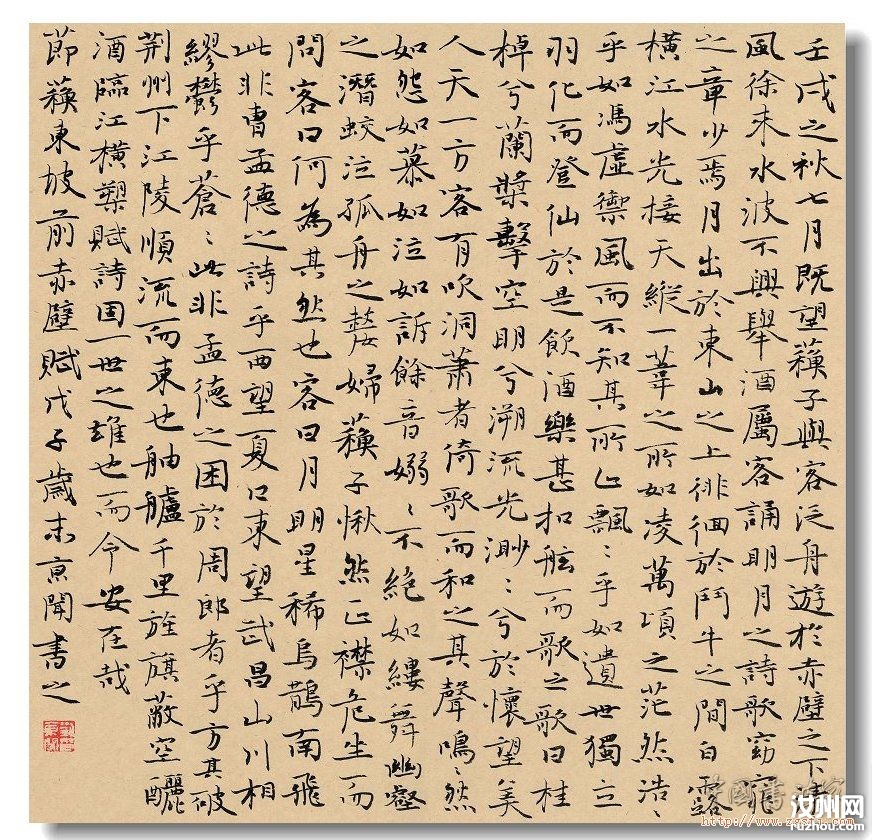 壬戌之秋七月既望蘇子與客泛舟遊於赤壁之下清
風徐来水波不興舉酒屬客誦明月之詩歌窈窕
之章少焉月出於東山之上徘徊於鬥牛之間白露
橫江水光接天縱一葦之所如凌萬頃之茫然浩〻
乎如馮虛御風而不知其所止飄〻乎如遺世獨立
羽化而登仙於是飲酒樂甚扣舷而歌之歌曰桂
棹兮蘭槳擊空明兮溯流光渺〻兮於懷望美
人天一方客有吹洞蕭者倚歌而和之其聲鳴〻然
如怨如慕如泣如訴餘音嫋〻不絕如縷舞幽壑
之潛蛟泣孤舟之嫠婦蘇子愀然正襟危坐而
問客曰何為其然也客曰月明星稀烏鵲南飛
此非曹孟德之詩乎西望夏口東望武昌山川相
繆鬱乎蒼〻此非孟德之困於周郎者乎方其破
荊州下江陵順流而東也舳艫千里旌旗蔽空釃
酒臨江橫槊賦詩固一世之雄也而今安在哉
節蘇東坡前赤壁賦戊子歲末京聞書之
中國書法家
http://www.zgsfj.com
汝州网
ruzhou.com